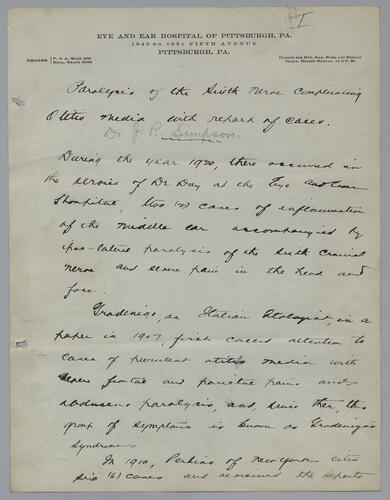 I
EYE AND EAR HOSPITAL OF PITTSBURGH, PA.
1945 TO 1951 FIFTH AVENUE
PITTSBURGH, PA.
PHONES
P. & A. MAIN
BELL, GRANT
CLINICS FOR EYE, EAR, NOSE AND THROAT
DAILY, EXCEPT SUNDAY AT 2 P. M.
Paralysis of the Sixth Nerve Complicating
Otitis Media with report of cases.
Dr. J. R. Simpson.
During the year 1920, there occurred in
the service of Dr Day at the Eye and Ear
Hospital, two (2) cases of inflammation
of the middle ear accompanied by
ipso-lateral paralysis of the sixth cranial
nerve and severe pain in the head and
face.
Gradenigo, an Italian Otologist, in a
paper in 1907, first called attention to
cases of purulent otitis media with
severe frontal and parietal pains and
abducens paralysis, and, since then, this
group of symptoms is known as Gradenigo's
Syndrome
In 1910, Perkins of New York cites
six (6) cases and reviewed the reports